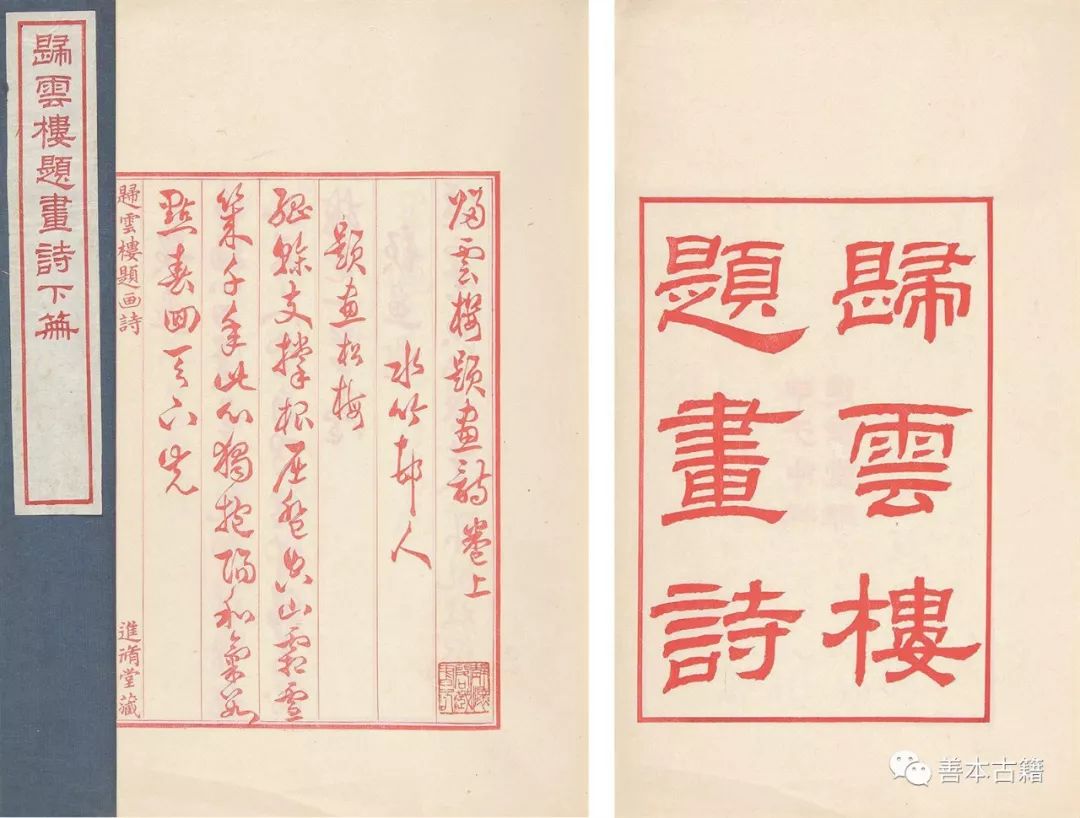 歸雲樓題畫詩下篇
歸雲樓題畫詩卷上
水竹邨人
題畫松梅
支撐根屈盤空山霜雪
千年此心獨抱陽和氣
點春回天下先
歸雲樓題画詩
進脩堂藏
歸雲樓
題畫詩
善本古籍